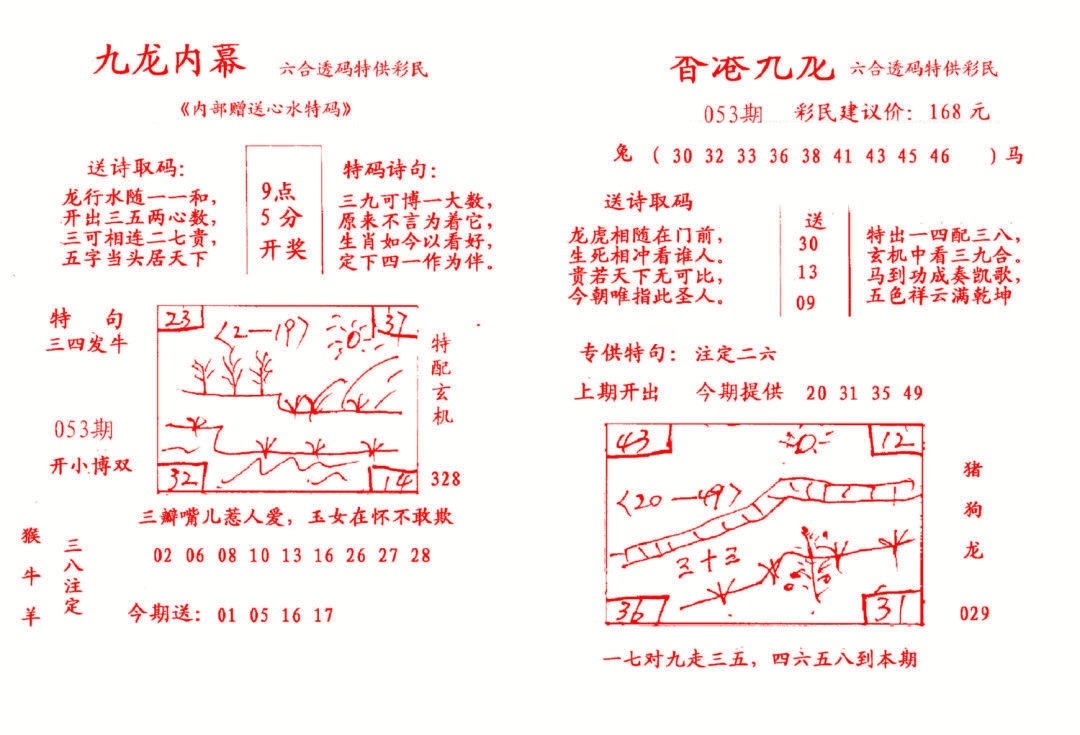 九龙内幕 六合透码特供彩民
《内部赠送心水特码》
送诗取码：
龙行水随一一和，
开出三五两心数，
三可相连二七贵，
五字当头居天下
9点
5分
开奖
特码诗句：
三九可博一大数，
原来不言为着它，
生肖如今以看好，
定下四一作为伴。
特 句
三四发牛
053期
开小博双
23
〈2—19〉
37
32
14
特配玄机
328
三瓣嘴儿惹人爱，玉女在怀不敢欺
猴牛羊
三八注定
02 06 08 10 13 16 26 27 28
今期送：01 05 16 17
香港九龙 六合透码特供彩民
053期 彩民建议价：168元
兔 （30 32 33 36 38 41 43 45 46 ）马
送诗取码
龙虎相随在门前，
生死相冲看谁人。
贵若天下无可比，
今朝唯指此圣人。
送
30
13
09
特出一四配三八，
玄机中看三九合。
马到功成奏凯歌，
五色祥云满乾坤
专供特句：注定二六
上期开出 今期提供 20 31 35 49
43
12
〈20—49〉
三十三
36
31
猪
狗
龙
029
一七对九走三五，四六五八到本期